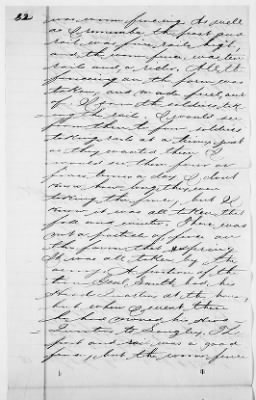 32
was worm fencing. As well
as I remember the post and
rail was five rails high,
and the worm fence was ten
rails and a rider. All the
fencing on the farm was
taken, and made fuel out
of. I seen the soldiers taking
the rails. I would see
from them to four soldiers
taking rails at a time, just
as they wanted them. I
would see them four or
five times a day. I dont
know how long they were
taking the fence, but I
know it was all taken that
fall and winter. There was
not a particle of fence on
the farm that spring
It was all taken by the
army. A portion of the
time Genl. Smith had his
Head Quarters at the house,
but when I went there
he had moved his Head
Quarters to Langley. The
post and rail was a good
fence, but the worm fence